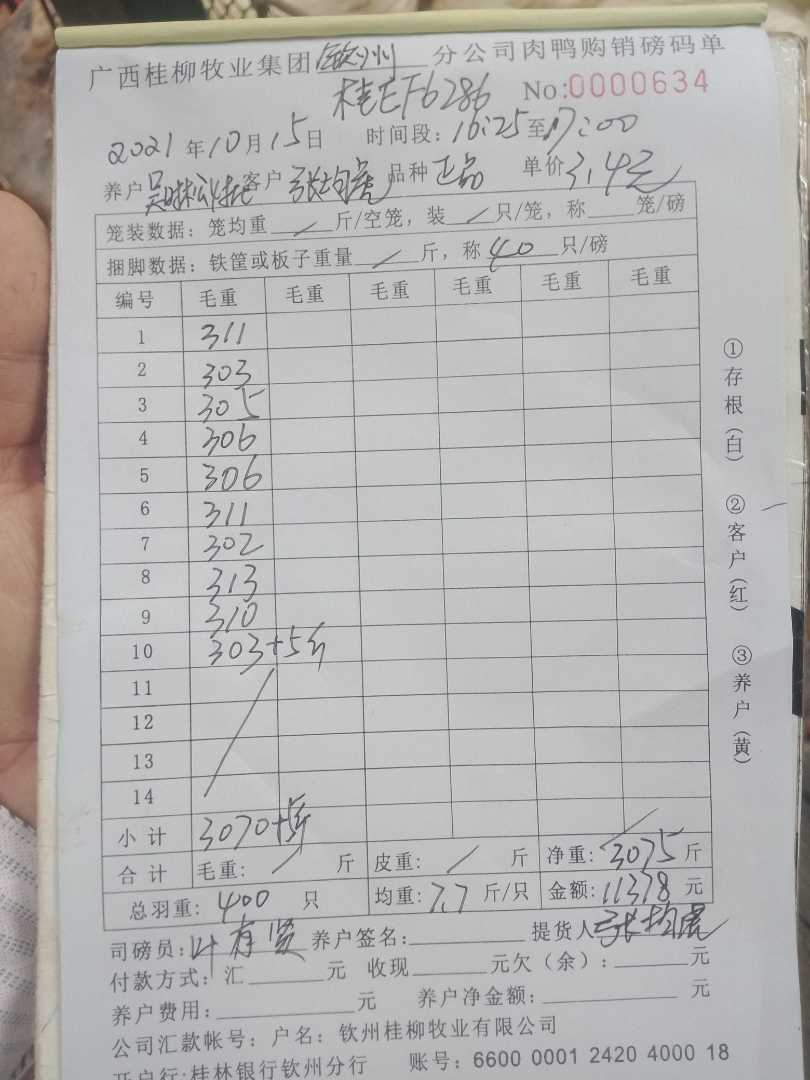 广西桂柳牧业集团钦州分公司肉鸭购销磅码单
桂EF6286 No:0000634
2021年10月15日 时间段:16:25至17:00
养户 客户 张均虎 品种 正品 单价 3.4元
笼装数据:笼均重/斤/空笼,装/只/笼,称 笼/磅
捆脚数据:铁筐或板子重量/斤,称40只/磅
编号 毛重 毛重 毛重 毛重 毛重 毛重
1 311
2 303
3 305
4 306
5 306
6 311
7 302
8 313
9 310
10 303+5斤
11
12
13
14
小计 3070+5斤
合计 毛重:/斤 皮重:/斤 净重:3075斤
总羽重:400只 均重:7.7斤/只 金额:11378元
司磅员:叶有贤 养户签名: 提货人 张均虎
付款方式:汇 元 收现 元欠(余): 元
养户费用: 元 养户净金额: 元
公司汇款帐号:户名:钦州桂柳牧业有限公司
开户行:桂林银行钦州分行 账号:6600 0001 2420 4000 18
①存根(白) ②客户(红) ③养户(黄)